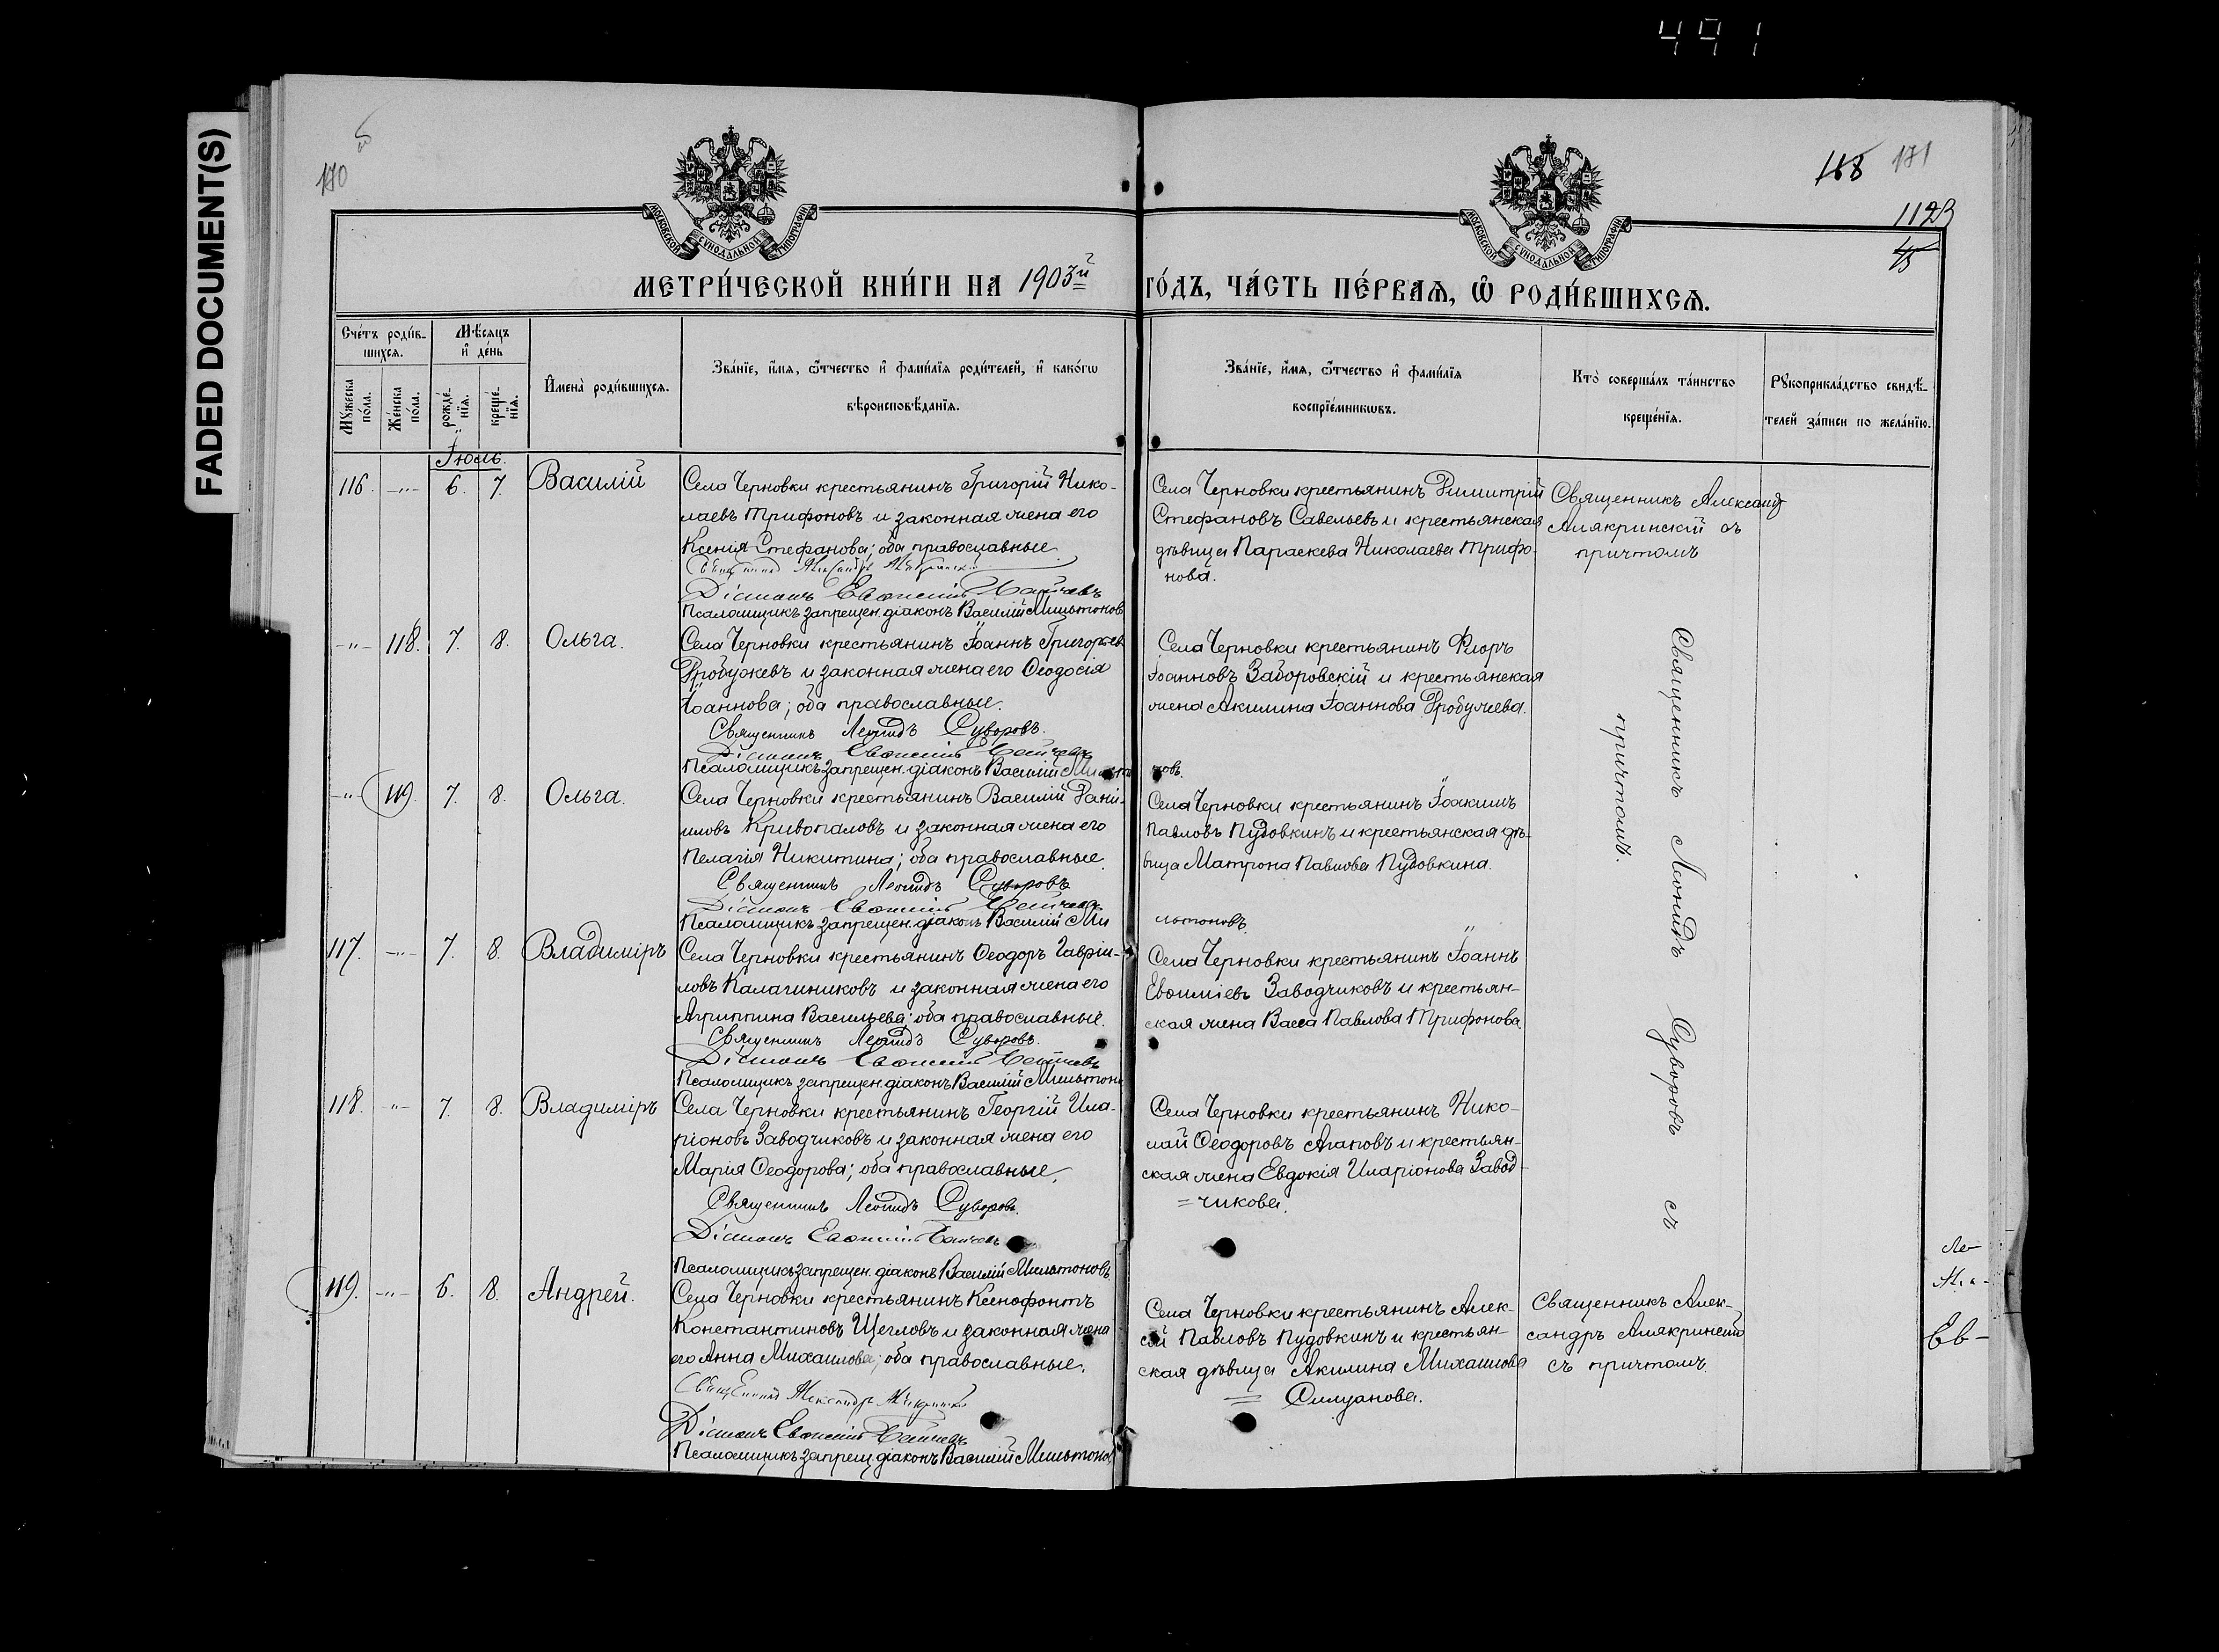 491
FADED DOCUMENT(S)
170
168 171
1123
МОСКОВСКОЙ СѴНОДАЛЬНОЙ ТИПОГРАФІИ
МОСКОВСКОЙ СѴНОДАЛЬНОЙ ТИПОГРАФІИ
МЕТРИ́ЧЕСКОЙ КНИ́ГИ НА 1903й ГО́ДЪ, ЧА́СТЬ ПЕ́РВАѦ, Ѡ РОДИ́ВШИХСѦ.
Сче́тъ роди́в-
шихся.
Мѣ́сяцъ
и҆ де́нь
Мꙋ́жеска
по́ла.
Же́нска
по́ла.
рожде́-
нїя.
креще́-
нїя.
И҆мена̀ роди́вшихся.
Зва́нїе, и҆́мя, ѻ҆́тчество и҆ фами́лїя роди́телей, и҆ како́гѡ
вѣроисповѣ́данїя.
Зва́нїе, и҆́мя, ѻ҆́тчество и҆ фами́лїя
воспрїе́мникѡвъ.
Кто̀ соверша́лъ та́инство
креще́нїя.
Рꙋкоприкла́дство свидѣ́-
телей за́писи по жела́нїю.
Іюль.
116. -"- 6. 7. Василій
Села Черновки крестьянинъ Григорій Нико-
лаевъ Трифоновъ и законная жена его
Ксенія Стефанова; оба православные
Діаконъ Евѳимій
Псаломщикъ запрещен. діаконъ Василій Мильтонов
Села Черновки крестьянинъ Димитрій
Стефановъ Савельевъ и крестьянская
дѣвица Параскева Николаева Трифо-
нова.
Священникъ Александ
Алякринскій съ
причтомъ
-"- 118. 7. 8. Ольга.
Села Черновки крестьянинъ Іоаннъ Григорьев
Дробужевъ и законная жена его Ѳеодосія
Іоаннова; оба православные.
Священникъ Леонидъ Суворовъ.
Діаконъ Евѳимій
Псаломщикъ запрещен. діаконъ Василій Мильто
новъ.
Села Черновки крестьянинъ Флоръ
Іоанновъ Заборовскій и крестьянская
жена Акилина Іоаннова Дробужева.
Священникъ Леонидъ Суворовъ съ
причтомъ.
-"- 119. 7. 8. Ольга.
Села Черновки крестьянинъ Василій Дані-
иловъ Кривопаловъ и законная жена его
Пелагія Никитина; оба православные
Священникъ Леонидъ Суворовъ
Діаконъ Евѳимій
Псаломщикъ запрещен. діаконъ Василій Ми
льтоновъ.
Села Черновки крестьянинъ Іоакимъ
Павловъ Пудовкинъ и крестьянская дѣ-
вица Матрона Павлова Пудовкина.
117. -"- 7. 8. Владиміръ
Села Черновки крестьянинъ Ѳеодоръ Гавріи-
ловъ Калагиниковъ и законная жена его
Агриппина Васильева; оба православные.
Священникъ Леонидъ Суворовъ.
Діаконъ Евѳимій
Псаломщикъ запрещен. діаконъ Василій Мильтон
Села Черновки крестьянинъ Іоаннъ
Евѳиміевъ Заводчиковъ и крестьян-
ская жена Васса Павлова Трифонова
118. -"- 7. 8. Владиміръ
Села Черновки крестьянинъ Георгій Ила-
ріоновъ Заводчиковъ и законная жена его
Марія Ѳеодорова; оба православные.
Священникъ Леонидъ Суворовъ.
Діаконъ Евѳимій
Псаломщикъ запрещен. діаконъ Василій Мильтоновъ.
Села Черновки крестьянинъ Нико-
лай Ѳеодоровъ Агаповъ и крестьян-
ская жена Евдокія Иларіонова Завод-
=чикова.
119. -"- 6. 8. Андрей.
Села Черновки крестьянинъ Ксенофонтъ
Константиновъ Щегловъ и законная жена
его Анна Михаилова; оба православные.
Діаконъ Евѳимій
Псаломщикъ запрещ діаконъ Василій Мильтонов
Села Черновки крестьянинъ Алек-
сѣй Павловъ Пудовкинъ и крестьян-
ская дѣвица Акилина Михаилова
= Силуанова.
Священникъ Алек-
сандръ Алякринскій
съ причтомъ.
Ев-